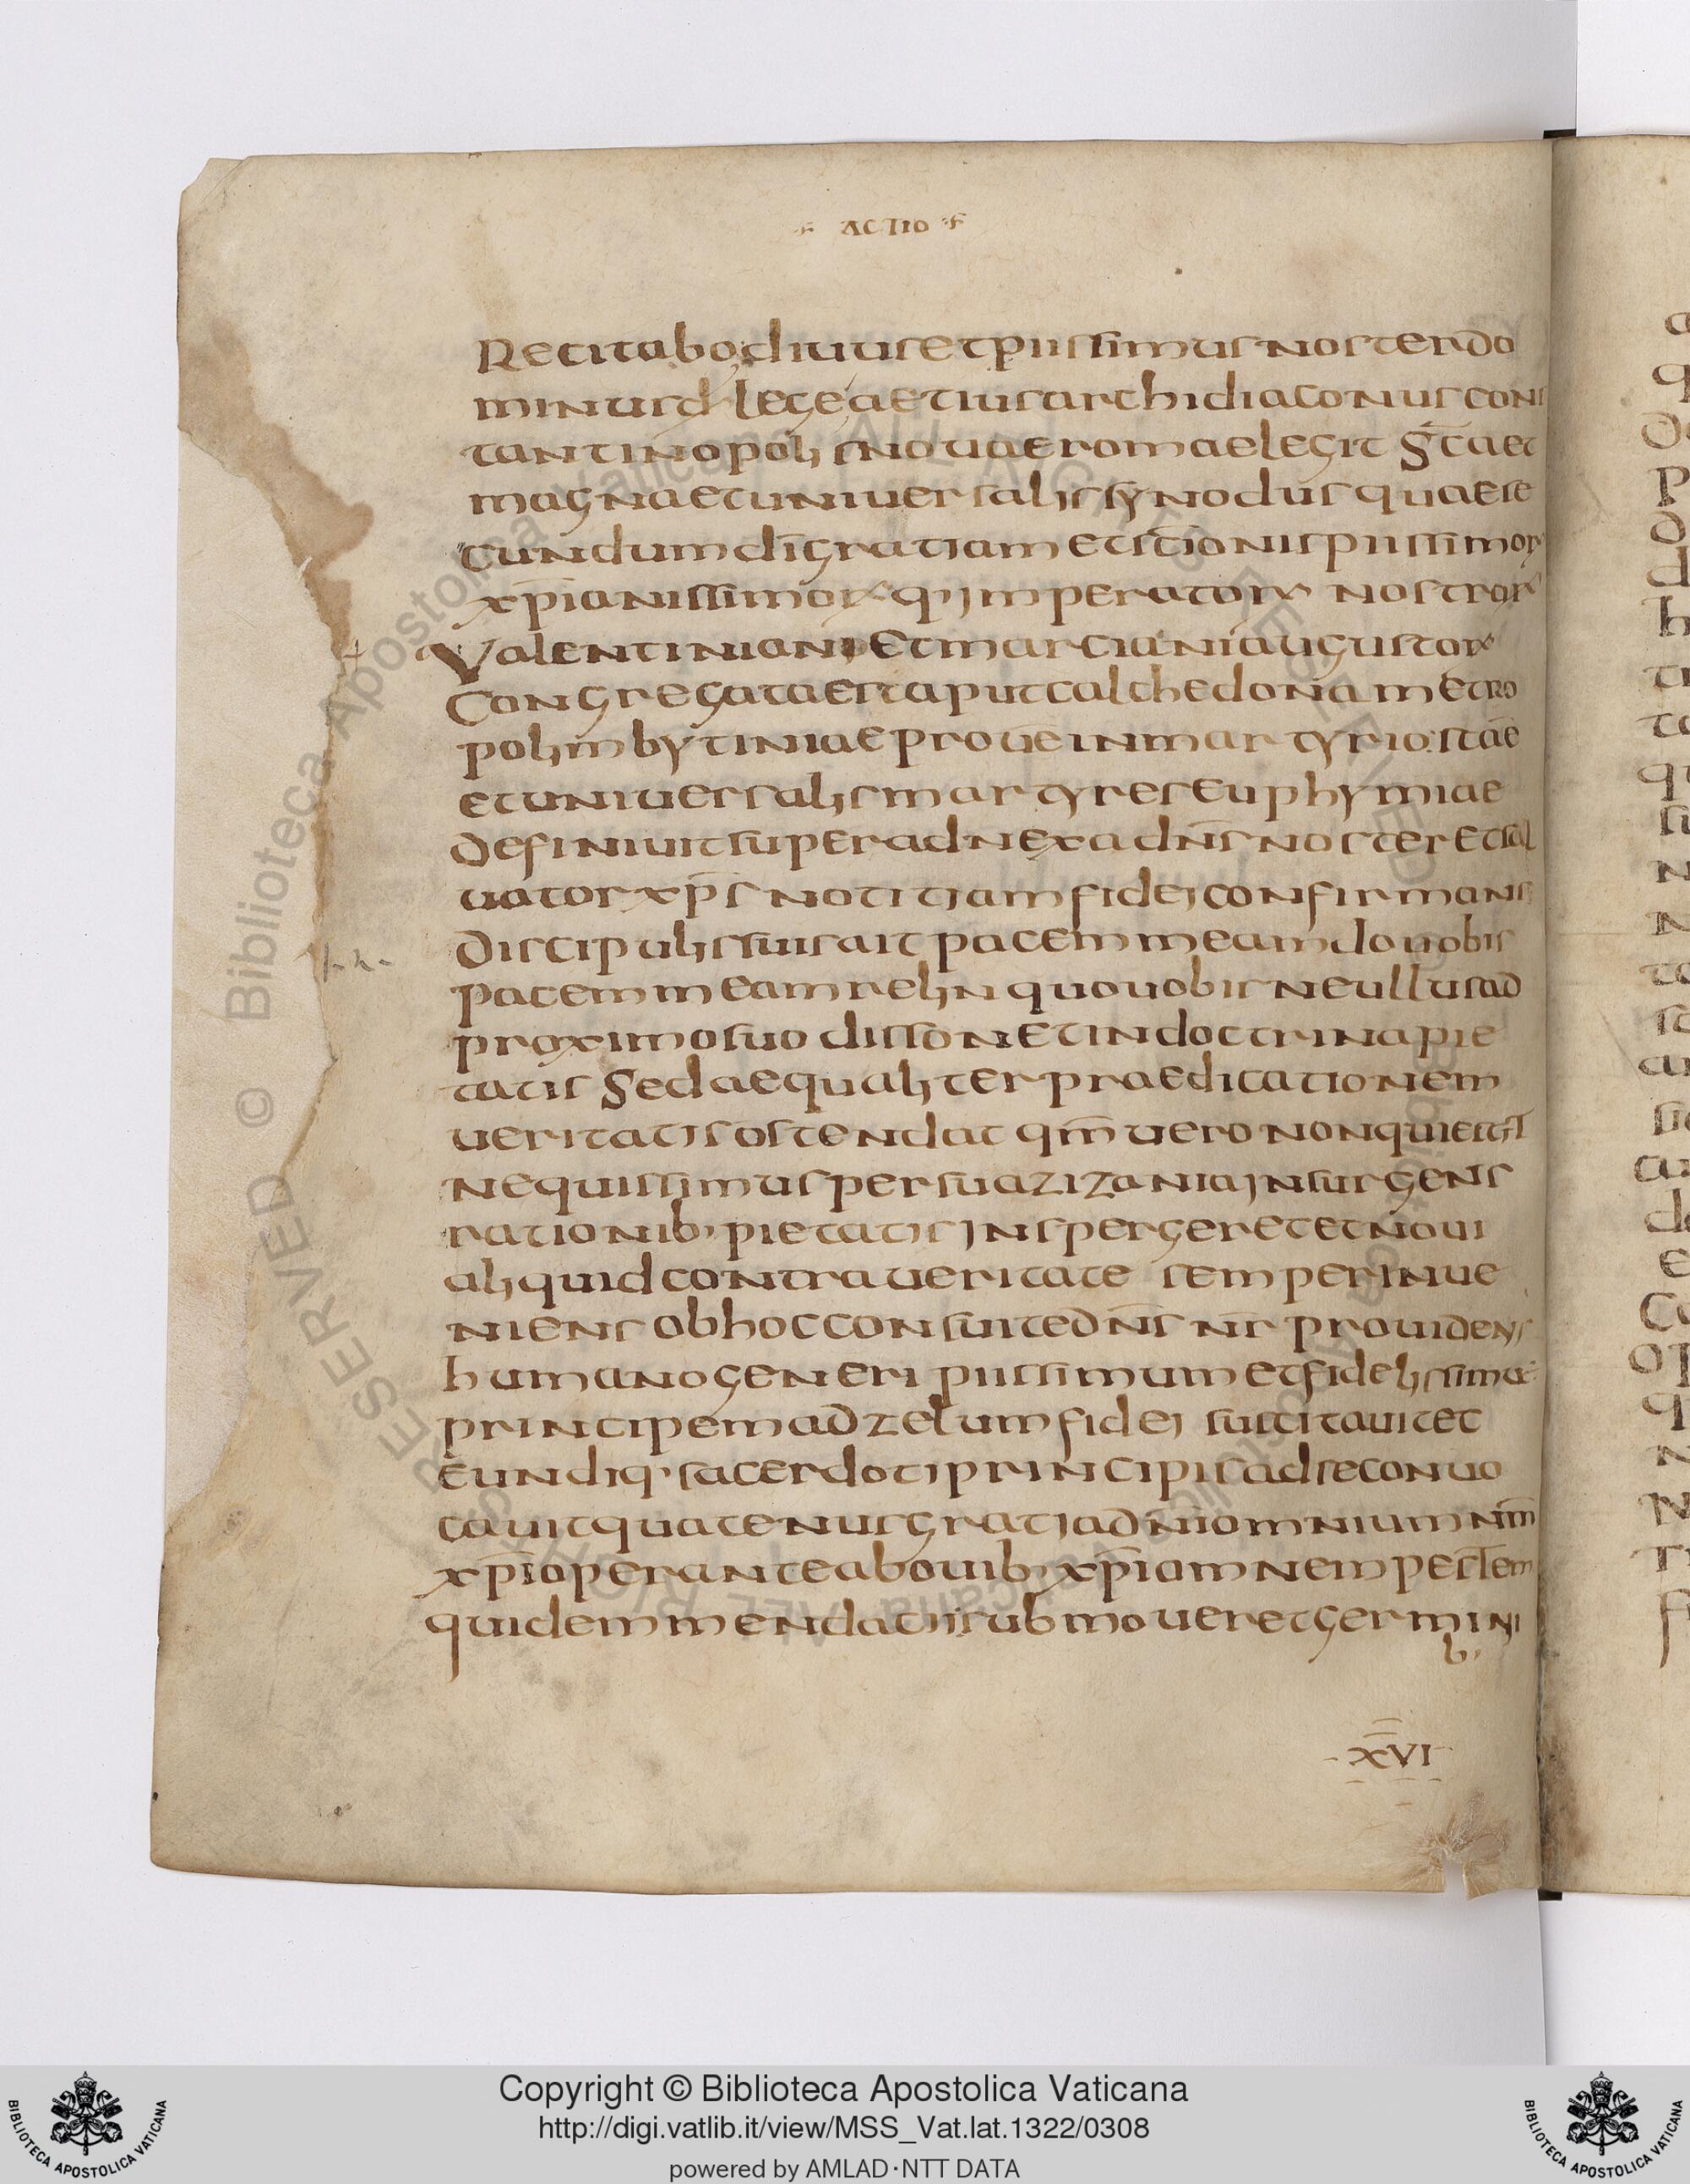 ACTIO
Recitabo diuus et piissimus noster do
minus dẋ lege aetius archidiaconus cons
tantinopolis nouae romae legit S̅c̅a et
magna et uniuersalis synodus quae se
cundum di̅ gratiam et sc̅io̅nis piissimoꝝ
xp̅ianissimoꝝ q· imperatoꝝ nostroꝝ
Valentiniani et marciani augustoꝝ
Congregata est aput calchedona metro
polim bytiniae proue in martyrio· sc̅ae
et uniuersalis martyres euphymiae
definiuit super adnexa dn̅s noster et sal
uator xp̅s notitiam fidei confirmans
discipulis suis ait pacem meam do uobis
pacem meam relinquo uobis ne ullus ad
proximo suo dissonet in doctrina pie
tatis Sed aequaliter praedicationem
ueritatis ostendat qm̅ uero non quiescit
nequissimus per sua zizania insurgens
rationib· pietatis inspergeret et noui
aliquid contra ueritate semper inue
niens ob hoc consuite dn̅s nr̅ prouidens
humano generi piissimum et fidelissimũ
principem ad zelum fidei suscitauit et
et undiq· sacerdoti principis ad se conuo
cauit quatenus gratia dn̅i omnium nm̅
xp̅i operante ab ouib· xp̅iam nem pestem
quidem mendatiis submoueret germini
b·
XVI
Copyright © Biblioteca Apostolica Vaticana
http://digi.vatlib.it/view/MSS_Vat.lat.1322/0308
powered by AMLAD·NTT DATA
BIBLIOTECA APOSTOLICA VATICANA
BIBLIOTECA APOSTOLICA VATICANA